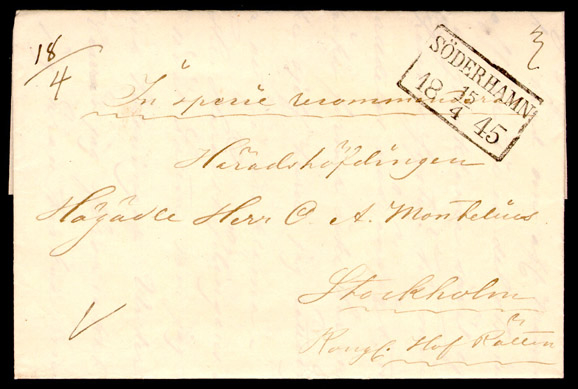 18/4
SÖDERHAMN
18 15/4 45
In specie recommenderas
Häradshöfdingen
Högädle Herr C. A. Montelius
Stockholm
Kongl. Hof Rätten